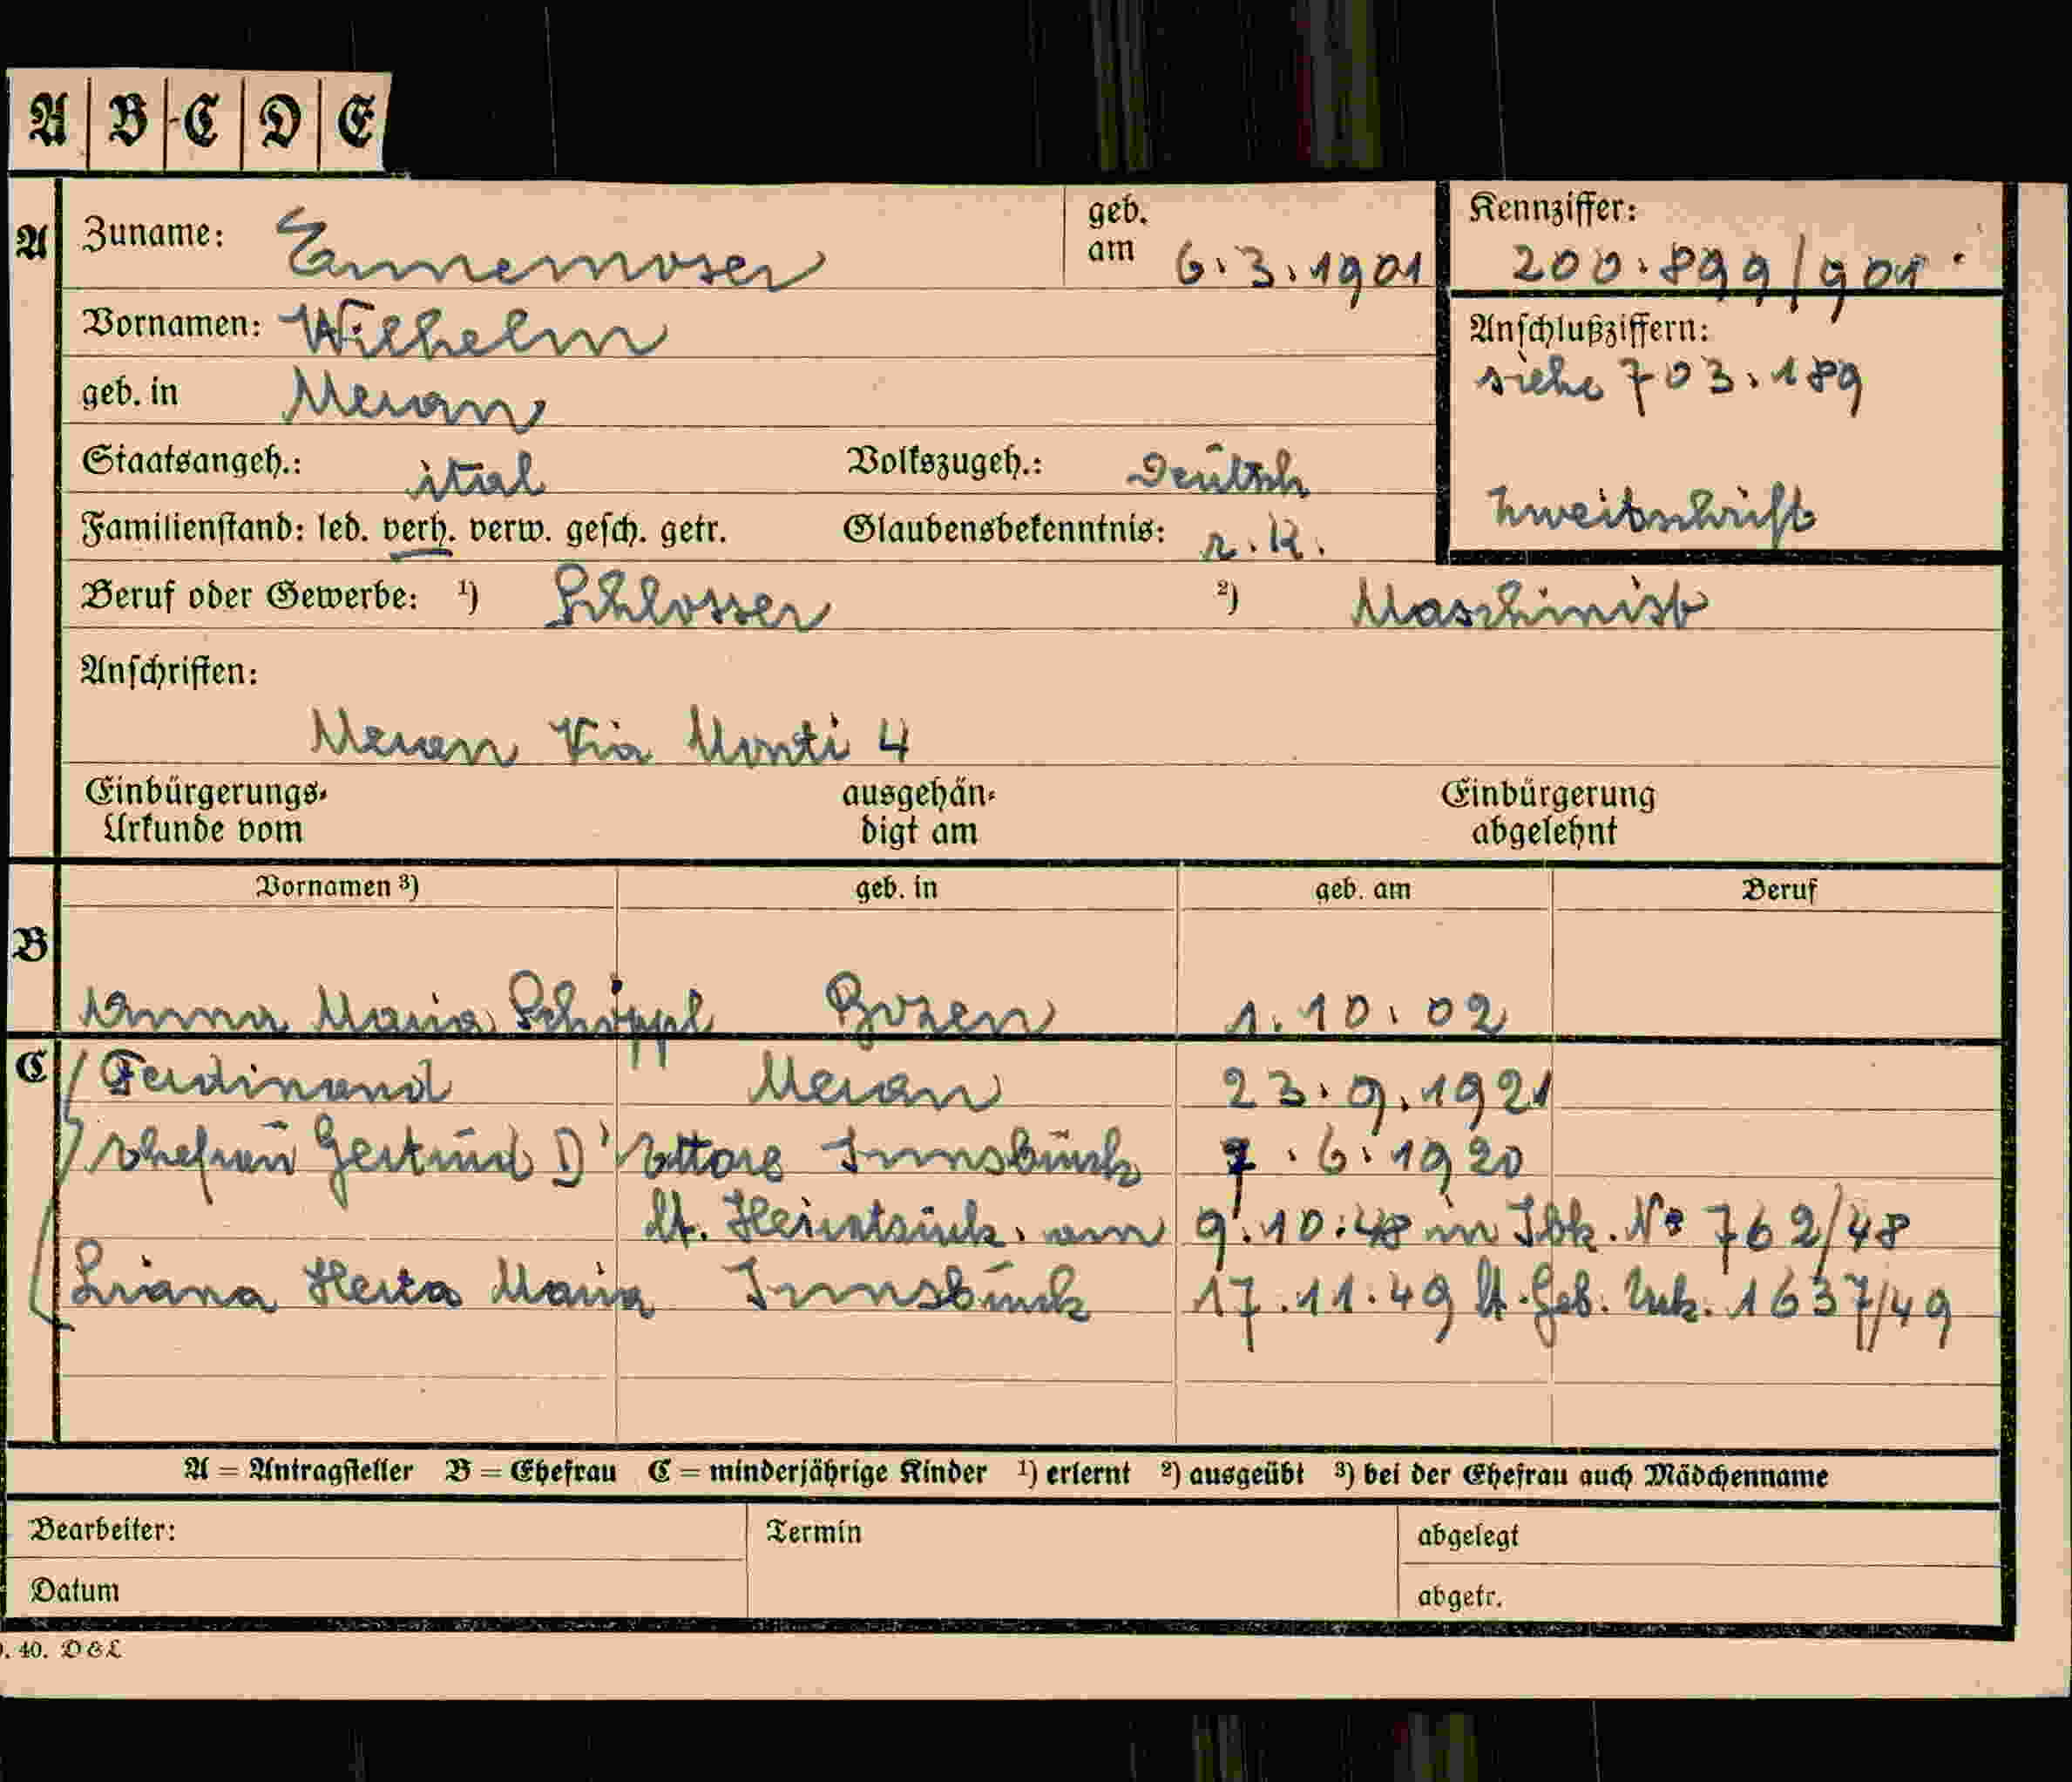 A B C D E
A Zuname: Ennemoser geb. am 6.3.1901 Kennziffer: 200.899/901
Vornamen: Wilhelm Anschlußziffern:
geb. in Meran siehe 703.189
Staatsangeh.: ital Volkszugeh.: Deutsch Zweitschrift
Familienstand: led. verh. verw. gesch. getr. Glaubensbekenntnis: r.k.
Beruf oder Gewerbe: 1) Schlosser 2) Maschinist
Anschriften:
Meran Via Monti 4
Einbürgerungs- ausgehän- Einbürgerung
Urkunde vom digt am abgelehnt
Vornamen 3) geb. in geb. am Beruf
B
Anna Maria Schöppl Bozen 1.10.02
C Ferdinand Meran 23.9.1921
Ehefrau Gertrud D'Ettore Innsbruck 7.6.1920
lt. Heiratsurk. am 9.10.48 in Ibk. No 762/48
Liana Herta Maria Innsbruck 17.11.49 lt. Geb. Urk. 1637/49
A = Antragsteller B = Ehefrau C = minderjährige Kinder 1) erlernt 2) ausgeübt 3) bei der Ehefrau auch Mädchenname
Bearbeiter: Termin abgelegt
Datum abgetr.
. 40. D & L